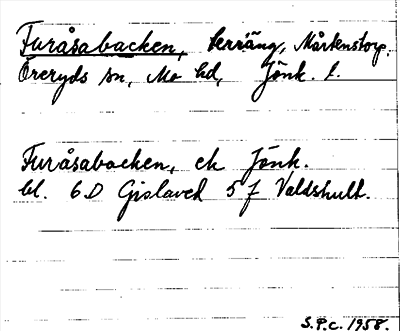 Furåsabacken, terräng, Mårtenstorp.
Öreryds sn, Mo hd, Jönk. l.
Furåsabacken, ek Jönk.
bl. 6D Gislaved 5f Valdshult.
S.P.C. 1958.